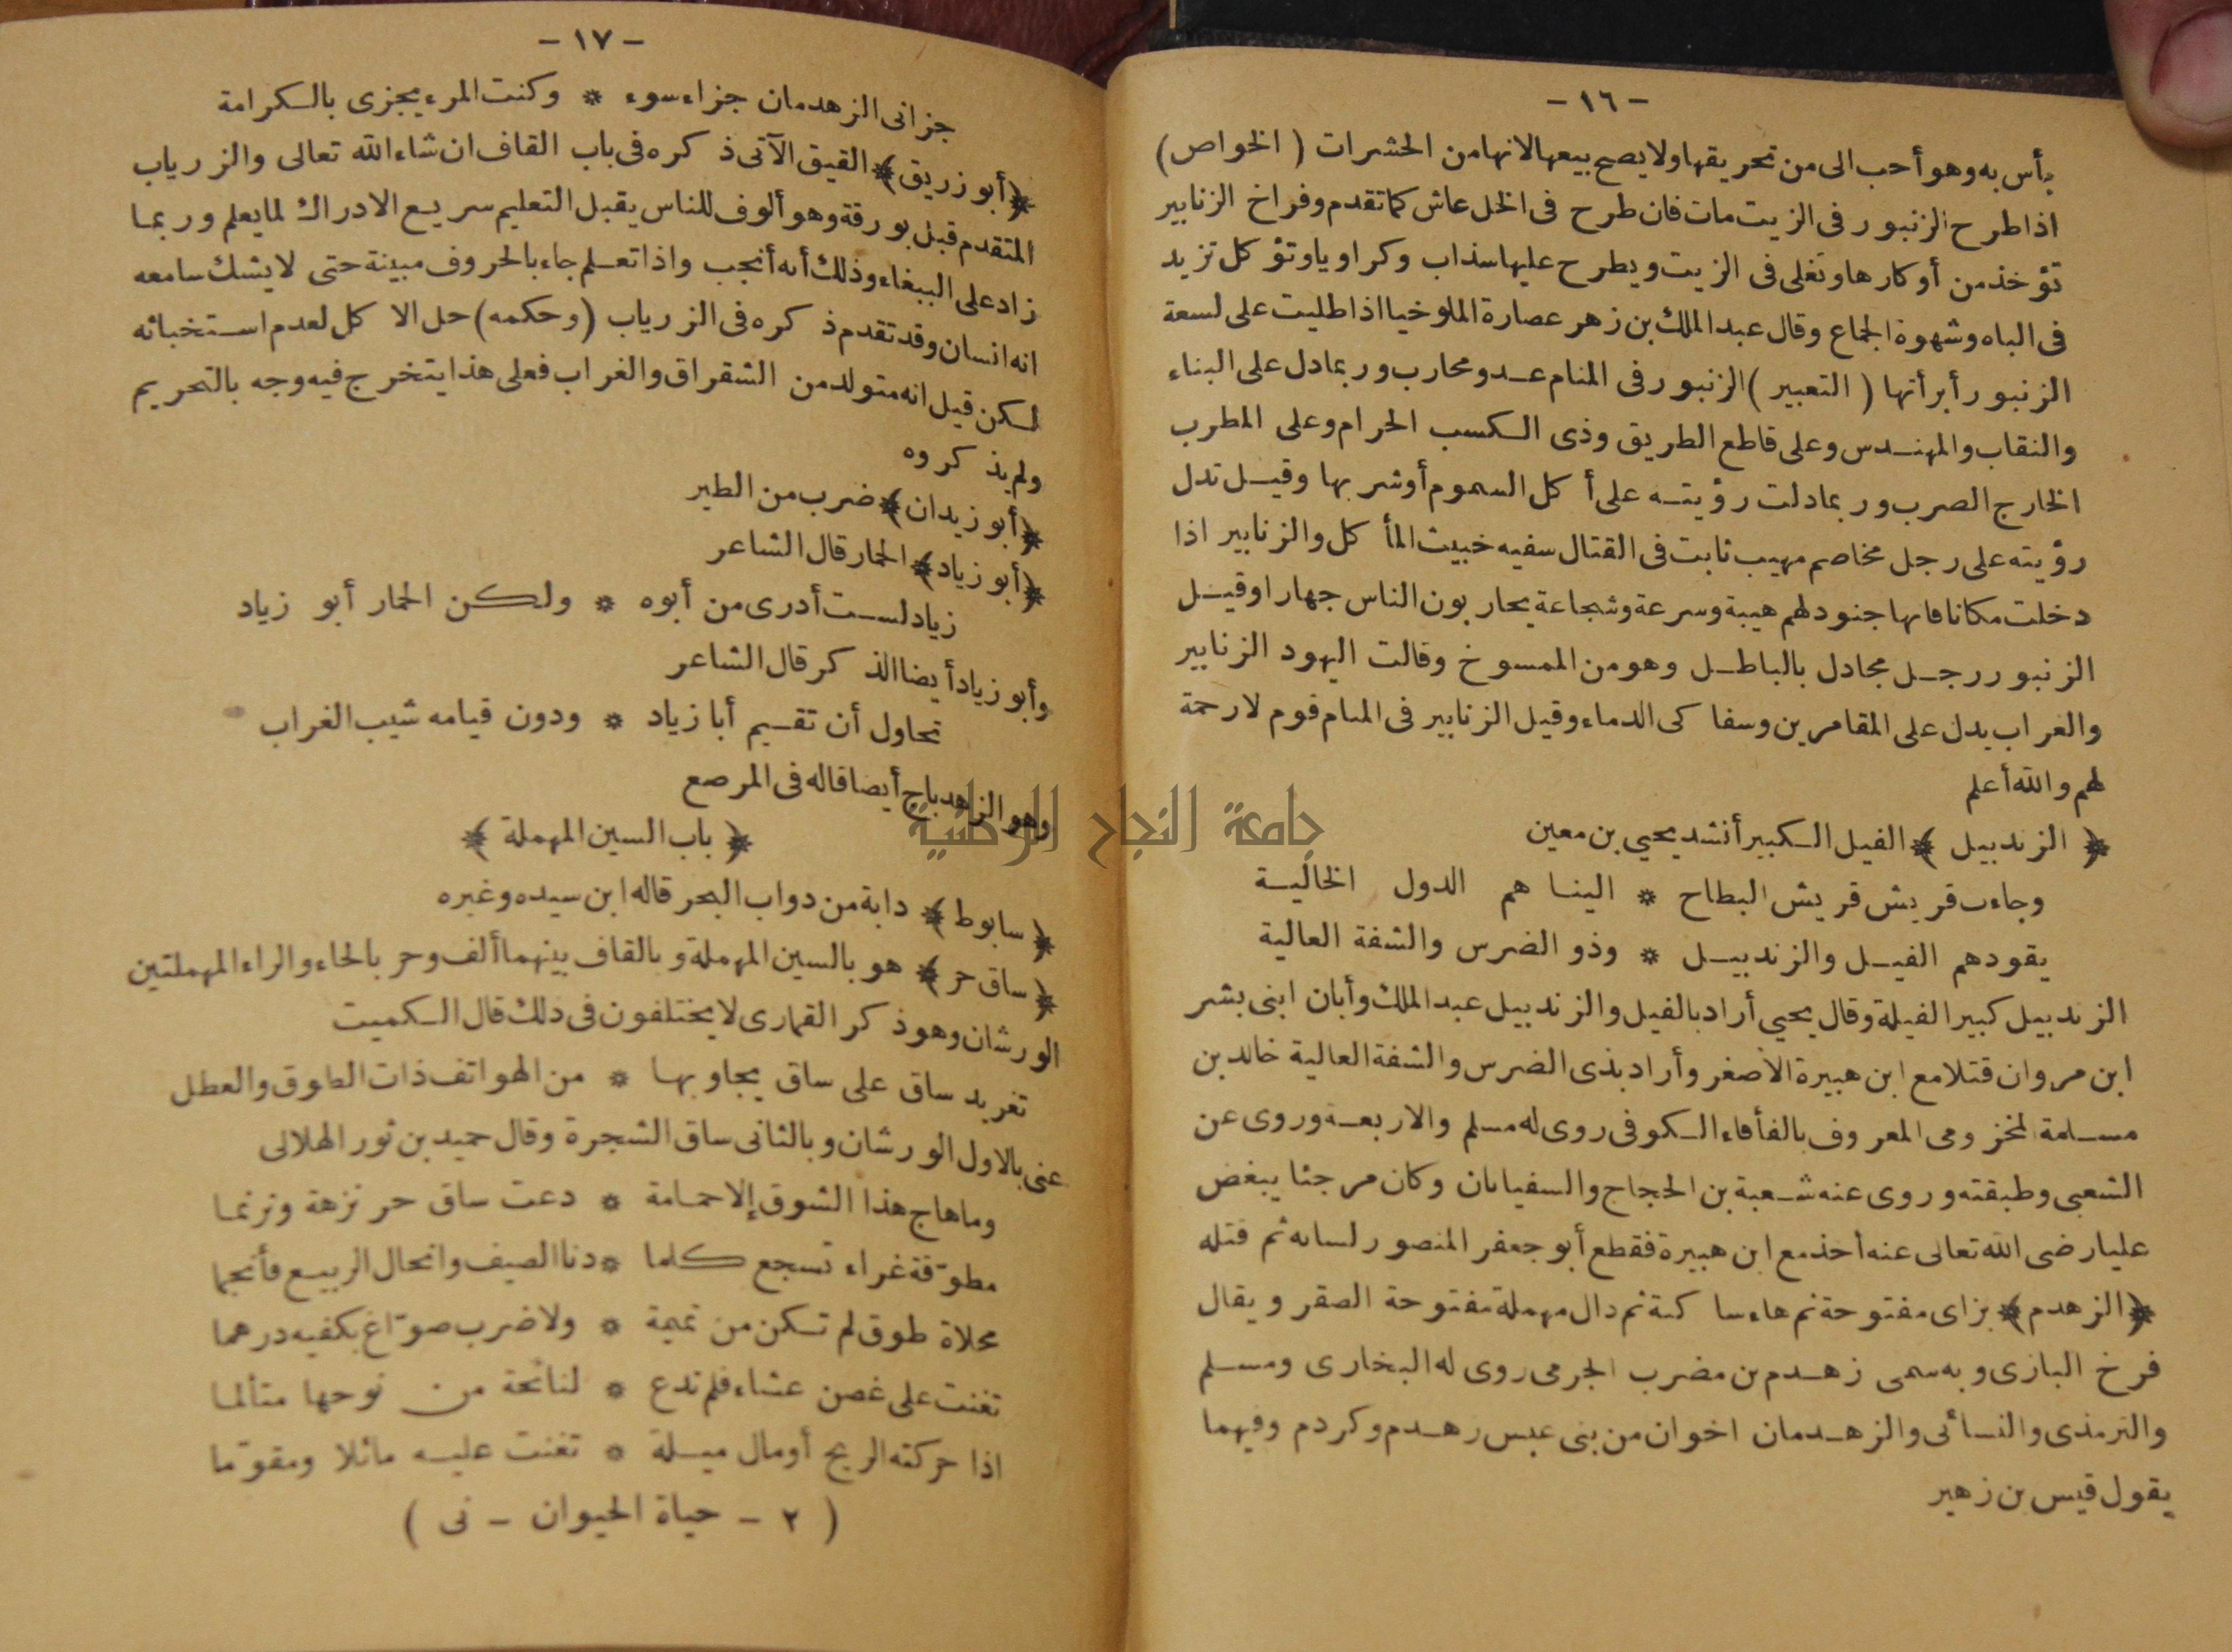 - ١٦ -
بأس به وهو أحب الى من تحريقها ولا يصح بيعها لانها من الحشرات ( الخواص )
اذا طرح الزنبور فى الزيت مات فان طرح فى الخل عاش كما تقدم وفراخ الزنابير
تؤخذ من أوكارها وتغلى فى الزيت ويطرح عليها سذاب وكراويا وتؤكل تزيد
فى الباه وشهوة الجماع وقال عبد الملك بن زهر عصارة الملوخيا اذا طليت على لسعة
الزنبور أبرأتها ( التعبير ) الزنبور فى المنام عدو محارب وربما دل على البناء
والنقاب والمهندس وعلى قاطع الطريق وذى الكسب الحرام وعلى المطرب
الخارج الضرب وربما دلت رؤيته على أكل السموم أو شربها وقيل تدل
رؤيته على رجل مخاصم مهيب ثابت فى القتال سفيه خبيث المأكل والزنابير اذا
دخلت مكانا فانها جنود لهم هيبة وسرعة وشجاعة يحاربون الناس جهارا وقيل
الزنبور رجل مجادل بالباطل وهو من الممسوخ وقالت اليهود الزنابير
والغراب يدل على المقامرين وسفاكى الدماء وقيل الزنابير فى المنام قوم لا رحمة
لهم والله أعلم
﴿ الزندبيل ﴾ الفيل الكبير أنشد يحيي بن معين
وجاءت قريش قريش البطاح * الينا هم الدول الخالية
يقودهم الفيل والزندبيل * وذو الضرس والشفة العالية
الزندبيل كبير الفيلة وقال يحيي أراد بالفيل والزندبيل عبد الملك وأبان ابنى بشر
ابن مروان قتلا مع ابن هبيرة الاصغر وأراد بذى الضرس والشفة العالية خالد بن
مسلمة المخزومى المعروف بالفأفاء الكوفى روى له مسلم والاربعة وروى عن
الشعبى وطبقته وروى عنه شعبة بن الحجاج والسفيانان وكان مرجئا يبغض
عليا رضى الله تعالى عنه أخذ مع ابن هبيرة فقطع أبو جعفر المنصور لسانه ثم قتله
﴿ الزهدم ﴾ بزاى مفتوحة ثم هاء ساكنة ثم دال مهملة مفتوحة الصقر ويقال
فرخ البازى وبه سمى زهدم بن مضرب الجرمى روى له البخارى ومسلم
والترمذى والنسائى والزهدمان اخوان من بنى عبس زهدم وكردم وفيهما
يقول قيس بن زهير
- ١٧ -
جزانى الزهدمان جزاء سوء * وكنت المرء يجزى بالكرامة
﴿ أبو زريق ﴾ القيق الآتى ذكره فى باب القاف ان شاء الله تعالى والزرياب
المتقدم قبل بورقة وهو ألوف للناس يقبل التعليم سريع الادراك لما يعلم وربما
زاد على الببغاء وذلك أنه أنجب واذا تعلم جاء بالحروف مبينة حتى لا يشك سامعه
انه انسان وقد تقدم ذكره فى الزرياب ( وحكمه ) حل الاكل لعدم استخبائه
لكن قيل انه متولد من الشقراق والغراب فعلى هذا يتخرج فيه وجه بالتحريم
ولم يذكروه
﴿ أبو زيدان ﴾ ضرب من الطير
﴿ أبو زياد ﴾ الحمار قال الشاعر
زياد لست أدرى من أبوه * ولكن الحمار أبو زياد
وأبو زياد أيضا الذكر قال الشاعر
تحاول أن تقيم أبا زياد * ودون قيامه شيب الغراب
وهو الزاهد باج أيضا قاله فى المرصع
﴿ باب السين المهملة ﴾
﴿ سابوط ﴾ دابة من دواب البحر قاله ابن سيده وغيره
﴿ ساق حر ﴾ هو بالسين المهملة وبالقاف بينهما ألف وحر بالحاء والراء المهملتين
الورشان وهو ذكر القمارى لا يختلفون فى ذلك قال الكميت
تغريد ساق على ساق يجاوبها * من الهواتف ذات الطوق والعطل
عنى بالاول الورشان وبالثانى ساق الشجرة وقال حميد بن ثور الهلالى
وما هاج هذا الشوق إلا حمامة * دعت ساق حر نزهة وترنما
مطوّقة غراء تسجع كلما * دنا الصيف وانحال الربيع فأنجما
محلاة طوق لم تكن من تميمة * ولا ضرب صوّاغ بكفيه درهما
تغنت على غصن عشاء فلم تدع * لنائحة من نوحها متألما
اذا حركته الريح أو مال ميلة * تغنت عليه مائلا ومقوّما
( ٢ - حياة الحيوان - نى )
جامعة النجاح الوطنية